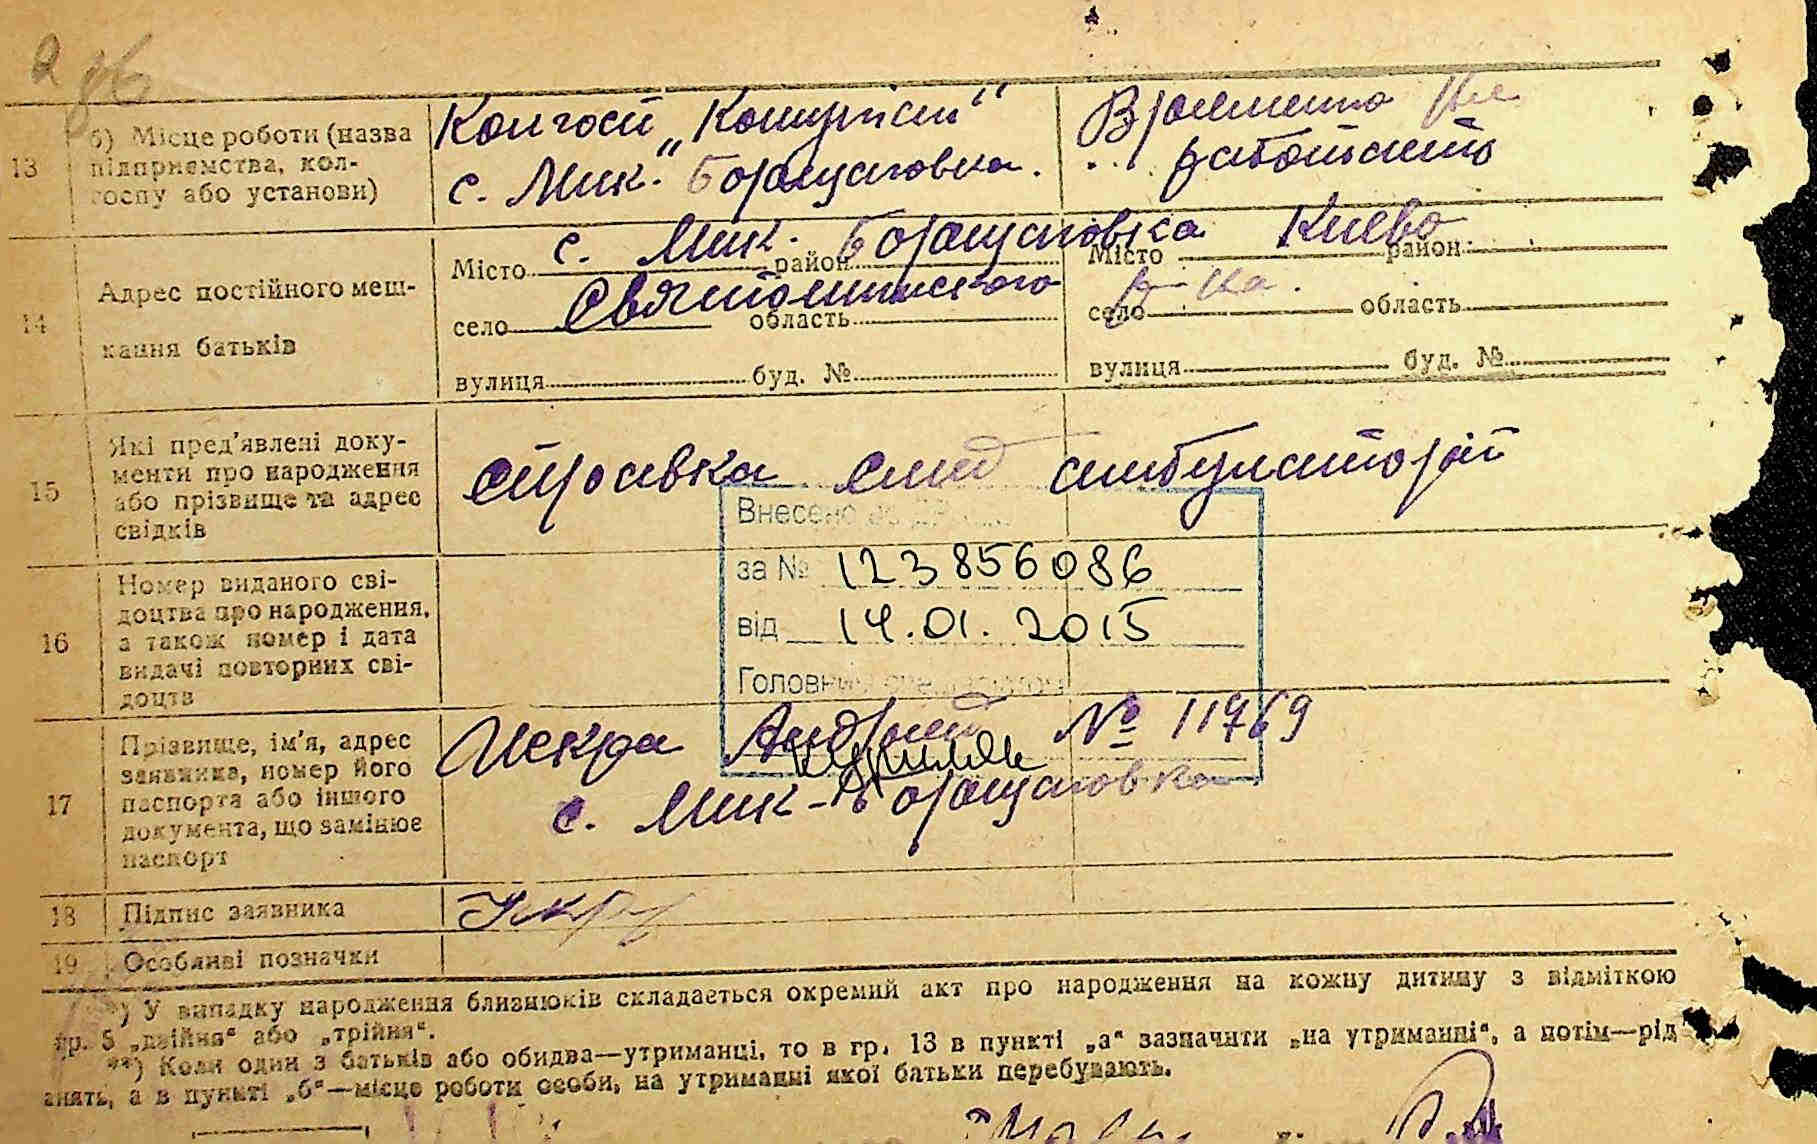 13
б) Місце роботи (назва
підприємства, кол-
госпу або установи)
Колгосп „Комуніст“
с. Мик. Борщаговка.
Временно не
работает
14
Адрес постійного меш-
кання батьків
с. Мик. Борщаговка
Місто район
Святошинского
село область
вулиця буд. №
Киево
Місто район
село область
вулиця буд. №
15
Які пред'явлені доку-
менти про народження
або прізвище та адрес
свідків
справка амбулаторії
Внесено до
за № 123856086
від 14.01.2015
Головний спеціаліст
16
Номер виданого сві-
доцтва про народження,
а також номер і дата
видачі повторних сві-
доцтв
17
Прізвище, ім'я, адрес
заявника, номер його
паспорта або іншого
документа, що замінює
паспорт
Искра Андрей № 11769
с. Мик-Борщаговка
18
Підпис заявника
19
Особливі позначки
*) У випадку народження близнюків складається окремий акт про народження на кожну дитину з відміткою
гр. 5 „двійня“ або „трійня“.
**) Коли один з батьків або обидва—утриманці, то в гр. 13 в пункті „а“ зазначити „на утриманні“, а потім—рід
анять, а в пункті „б“—місце роботи особи, на утриманні якої батьки перебувають.